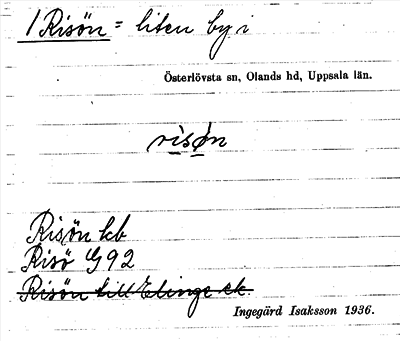 / Risön = liten by i
Österlövsta sn, Olands hd, Uppsala län.
risøn
Risön kb
Risö G 92
Risön till Elinge ek.
Ingegärd Isaksson 1936.